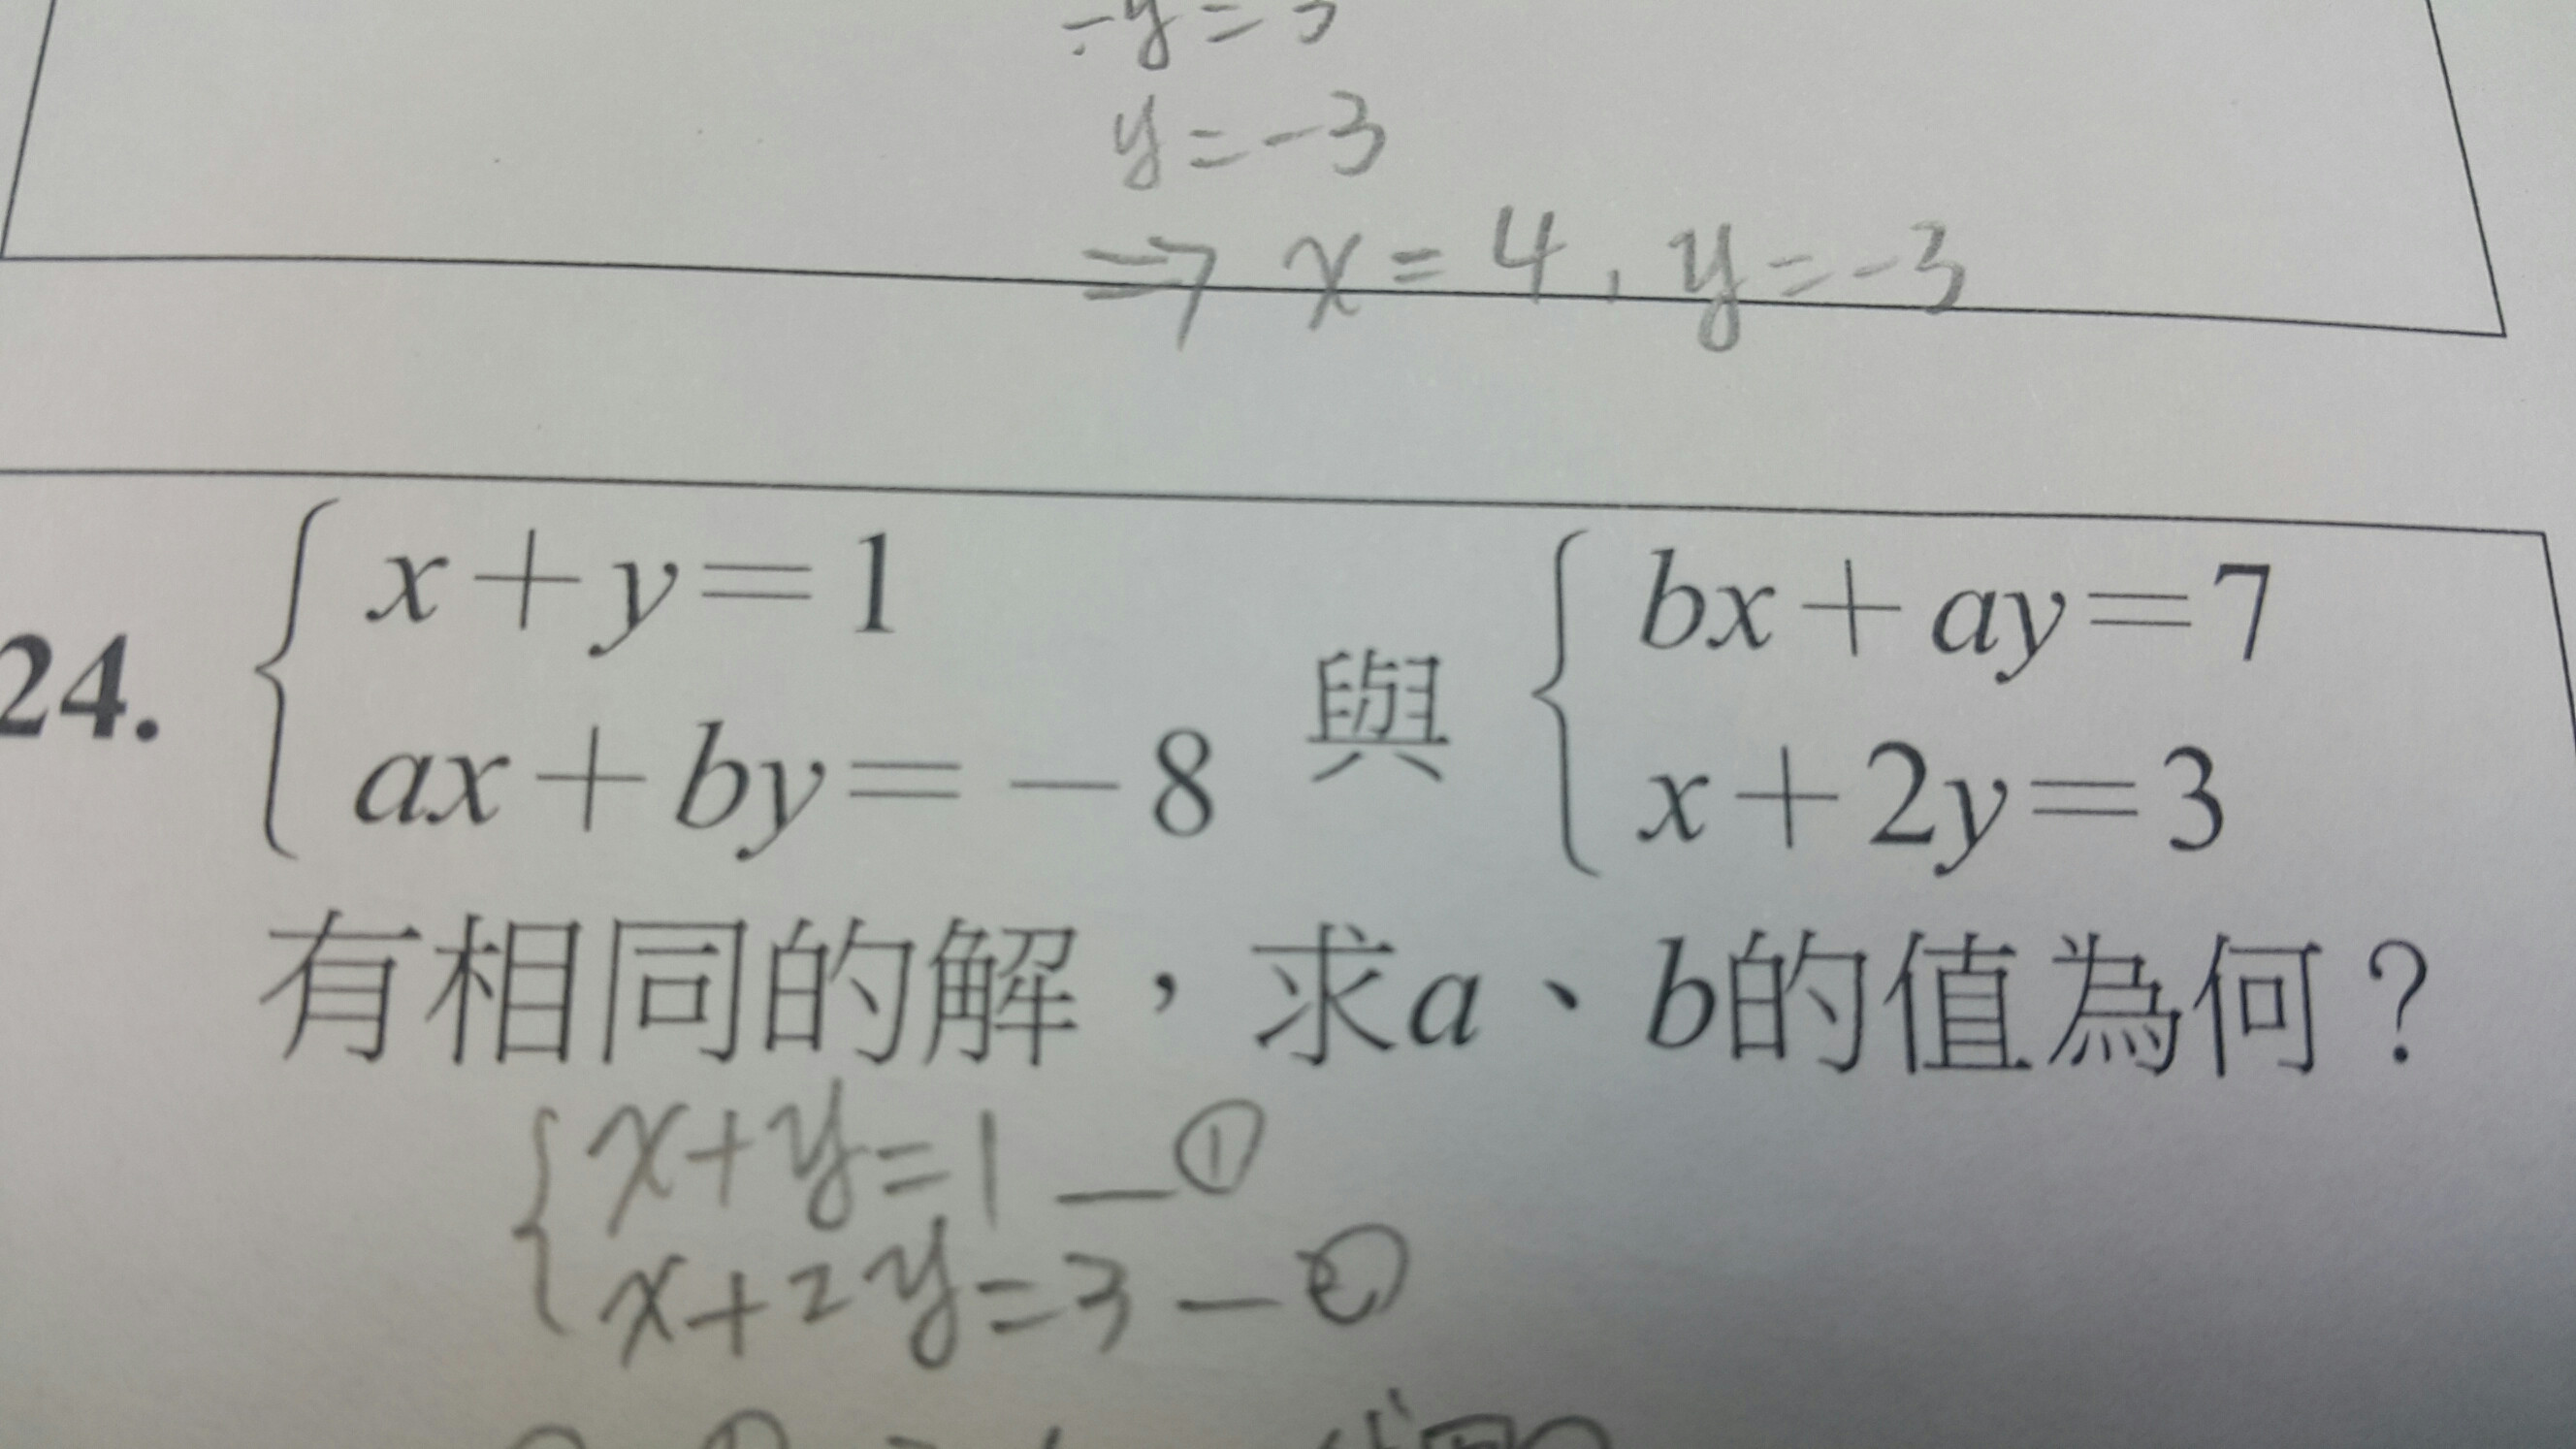 y=-3
⇒ x=4, y=-3
24. { x+y=1 ax+by=-8 與 { bx+ay=7 x+2y=3
有相同的解，求a、b的值為何？
{ x+y=1 —①
x+2y=3 —②